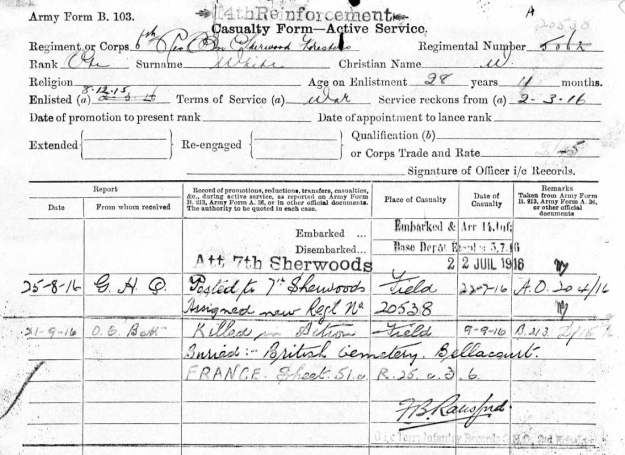 14th Reinforcement
Army Form B. 103.
Casualty Form—Active Service.
20538
Regiment or Corps 6th Res Bn Sherwood Foresters Regimental Number 5062
Rank Pte Surname White Christian Name W.
Religion Age on Enlistment 28 years 11 months.
Enlisted (a) 8-12-15 Terms of Service (a) War Service reckons from (a) 2-3-16
Date of promotion to present rank Date of appointment to lance rank
Extended Re-engaged Qualification (b)
or Corps Trade and Rate
Signature of Officer i/c Records.
Report
Date From whom received
Record of promotions, reductions, transfers, casualties,
&c., during active service, as reported on Army Form
B. 213, Army Form A. 36, or in other official documents.
The authority to be quoted in each case.
Place of Casualty
Date of
Casualty
Remarks
Taken from Army Form
B. 213, Army Form A. 36,
or other official
documents
Embarked ... Embarked &
Disembarked... Base Depot 5.7.16
Att 7th Sherwoods 22 JUIL 1916
25-8-16 G.H.Q. Posted to 7th Sherwoods Field 22-7-16 A.O. 204/16
Assigned new Regtl No 20538
21-9-16 O.C. Batt Killed in Action Field 9-9-16 B.213
Buried:- British Cemetery, Bellacourt.
FRANCE. Sheet. 51.c. R.25.a.3.6.